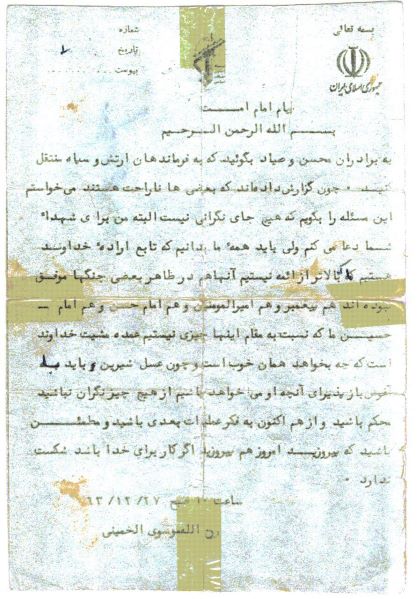 بسمه تعالی
جمهوری اسلامی ایران
شماره
تاریخ
پیوست
پیام امام است
بسم الله الرحمن الرحیم
به برادران محسن و صیاد بگوئید که به فرماندهان ارتش و سپاه منتقل
کنید . چون گزارش داده‌اند که بعضی ها ناراحت هستند می‌خواستم
این مسئله را بگویم که هیچ جای نگرانی نیست البته من برای شهدا
شما دعا می کنم ولی باید همه ما بدانیم که تابع اراده خداوند
هستیم ما که بالاتر از ائمه نیستیم آنها هم در ظاهر بعضی جنگها موفق
نبوده اند هم پیغمبر و هم امیرالمومنین و هم امام حسن و هم امام
حسین ما که نسبت به مقام اینها چیزی نیستیم عمده مشیت خداوند
است که چه بخواهد همان خوب است و چون عسل شیرین و باید با
آغوش باز پذیرای آنچه او می خواهد باشیم از هیچ چیز نگران نباشید
محکم باشید و از هم اکنون به فکر عملیات بعدی باشید و مطمئن
باشید که پیروزید امروز هم پیروزید اگر کار برای خدا باشد شکست
ندارد .
ساعت ۱۰ صبح ۶۳/۱۲/۲۷
روح الله موسوی الخمینی